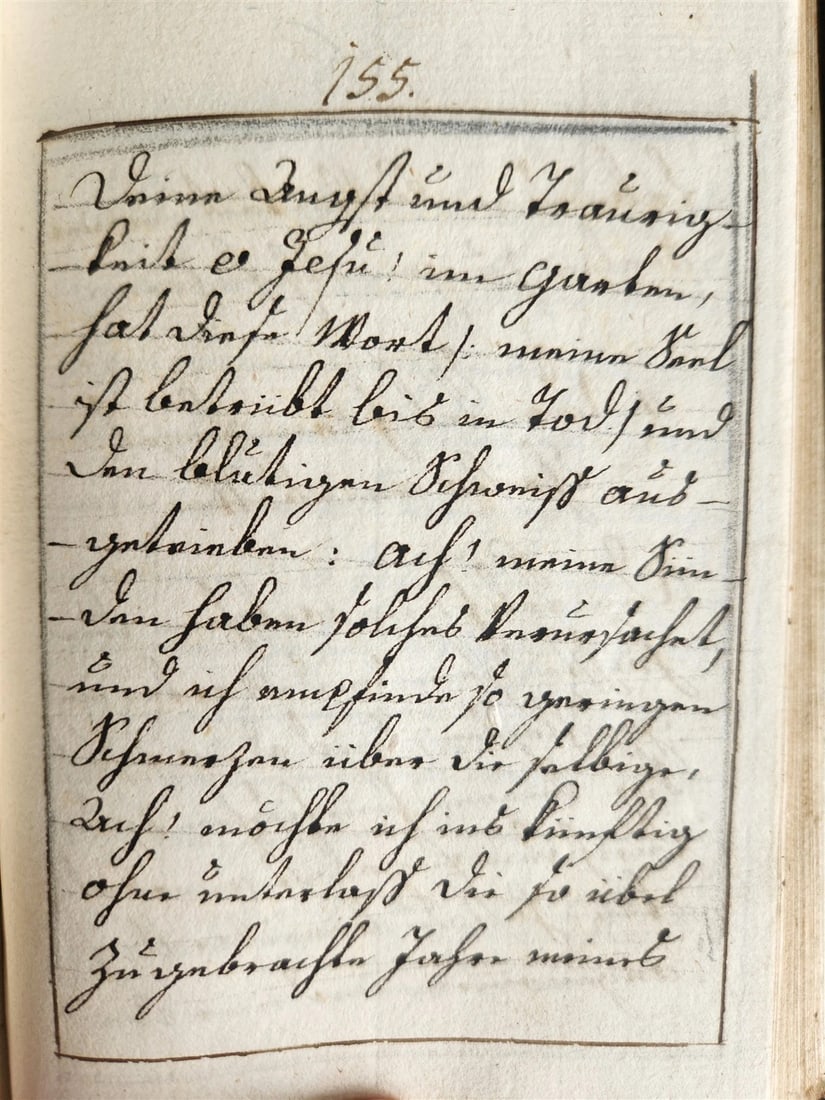 155.
Deine Angst und Traurig-
keit o Jesu! im Garten,
hat diese Wort /: meine Seel
ist betrübt bis in Tod / und
den blutigen Schweiß aus-
getrieben: ach! meine Sün-
den haben solches Verursachet,
und ich empfinde so geringen
Schmerzen über die selbige,
Ach! möchte ich ins künftig
ohne unterlaß die so übel
Zugebrachte Jahre meines